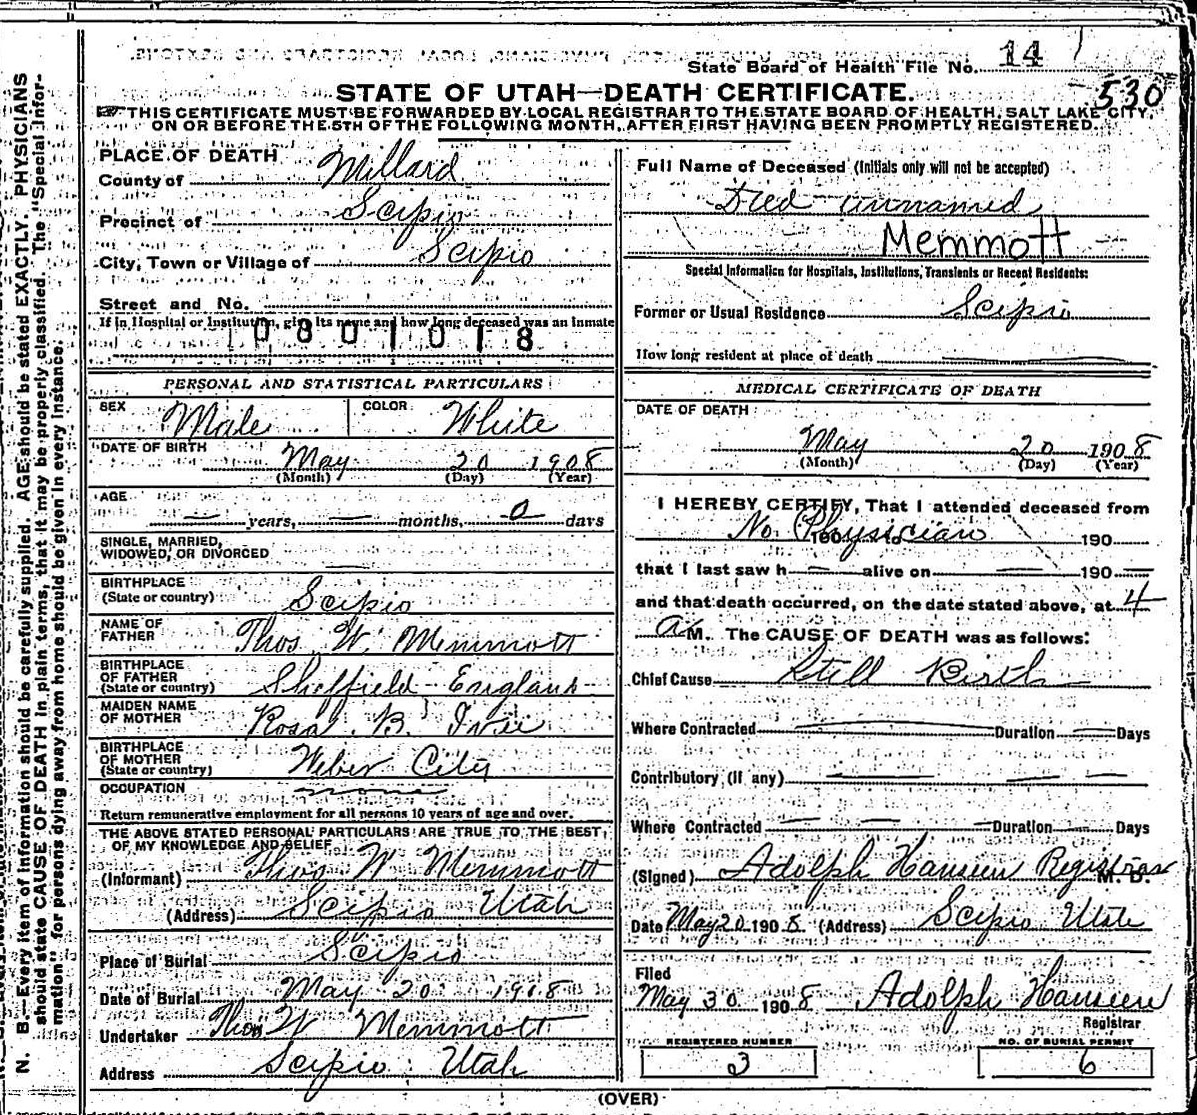 State Board of Health File No. 14
530
STATE OF UTAH—DEATH CERTIFICATE.
THIS CERTIFICATE MUST BE FORWARDED BY LOCAL REGISTRAR TO THE STATE BOARD OF HEALTH, SALT LAKE CITY,
ON OR BEFORE THE 5TH OF THE FOLLOWING MONTH, AFTER FIRST HAVING BEEN PROMPTLY REGISTERED.
N. B.—Every item of information should be carefully supplied. AGE should be stated EXACTLY. PHYSICIANS
should state CAUSE OF DEATH in plain terms, that it may be properly classified. The "Special Infor-
mation" for persons dying away from home should be given in every instance.
PLACE OF DEATH
County of Millard
Precinct of Scipio
City, Town or Village of Scipio
Street and No.
If in Hospital or Institution, give its name and how long deceased was an inmate
0801018
PERSONAL AND STATISTICAL PARTICULARS
SEX Male COLOR White
DATE OF BIRTH May 20 1908
(Month) (Day) (Year)
AGE
— years, — months, 0 days
SINGLE, MARRIED,
WIDOWED, OR DIVORCED —
BIRTHPLACE
(State or country) Scipio
NAME OF
FATHER Thos W. Memmott
BIRTHPLACE
OF FATHER
(State or country) Sheffield England
MAIDEN NAME
OF MOTHER Rosal B. Ivie
BIRTHPLACE
OF MOTHER
(State or country) Weber City
OCCUPATION none
Return remunerative employment for all persons 10 years of age and over.
THE ABOVE STATED PERSONAL PARTICULARS ARE TRUE TO THE BEST
OF MY KNOWLEDGE AND BELIEF
(Informant) Thos W Memmott
(Address) Scipio Utah
Place of Burial Scipio
Date of Burial May 20 1908
Undertaker Thos W Memmott
Address Scipio Utah
Full Name of Deceased (Initials only will not be accepted)
Died unnamed
Memmott
Special Information for Hospitals, Institutions, Transients or Recent Residents:
Former or Usual Residence Scipio
How long resident at place of death
MEDICAL CERTIFICATE OF DEATH
DATE OF DEATH
May 20 1908
(Month) (Day) (Year)
I HEREBY CERTIFY, That I attended deceased from
No Physician 190
that I last saw h— alive on — 190 —
and that death occurred, on the date stated above, at 4
a M. The CAUSE OF DEATH was as follows:
Chief Cause Still Birth
Where Contracted — Duration — Days
Contributory (if any) — — —
Where Contracted — — — Duration — Days
(Signed) Adolph Hansen Registrar M. D.
Date May 20 1908. (Address) Scipio Utah
Filed
May 30 1908 Adolph Hansen
Registrar
REGISTERED NUMBER
3
NO. OF BURIAL PERMIT
6
(OVER)